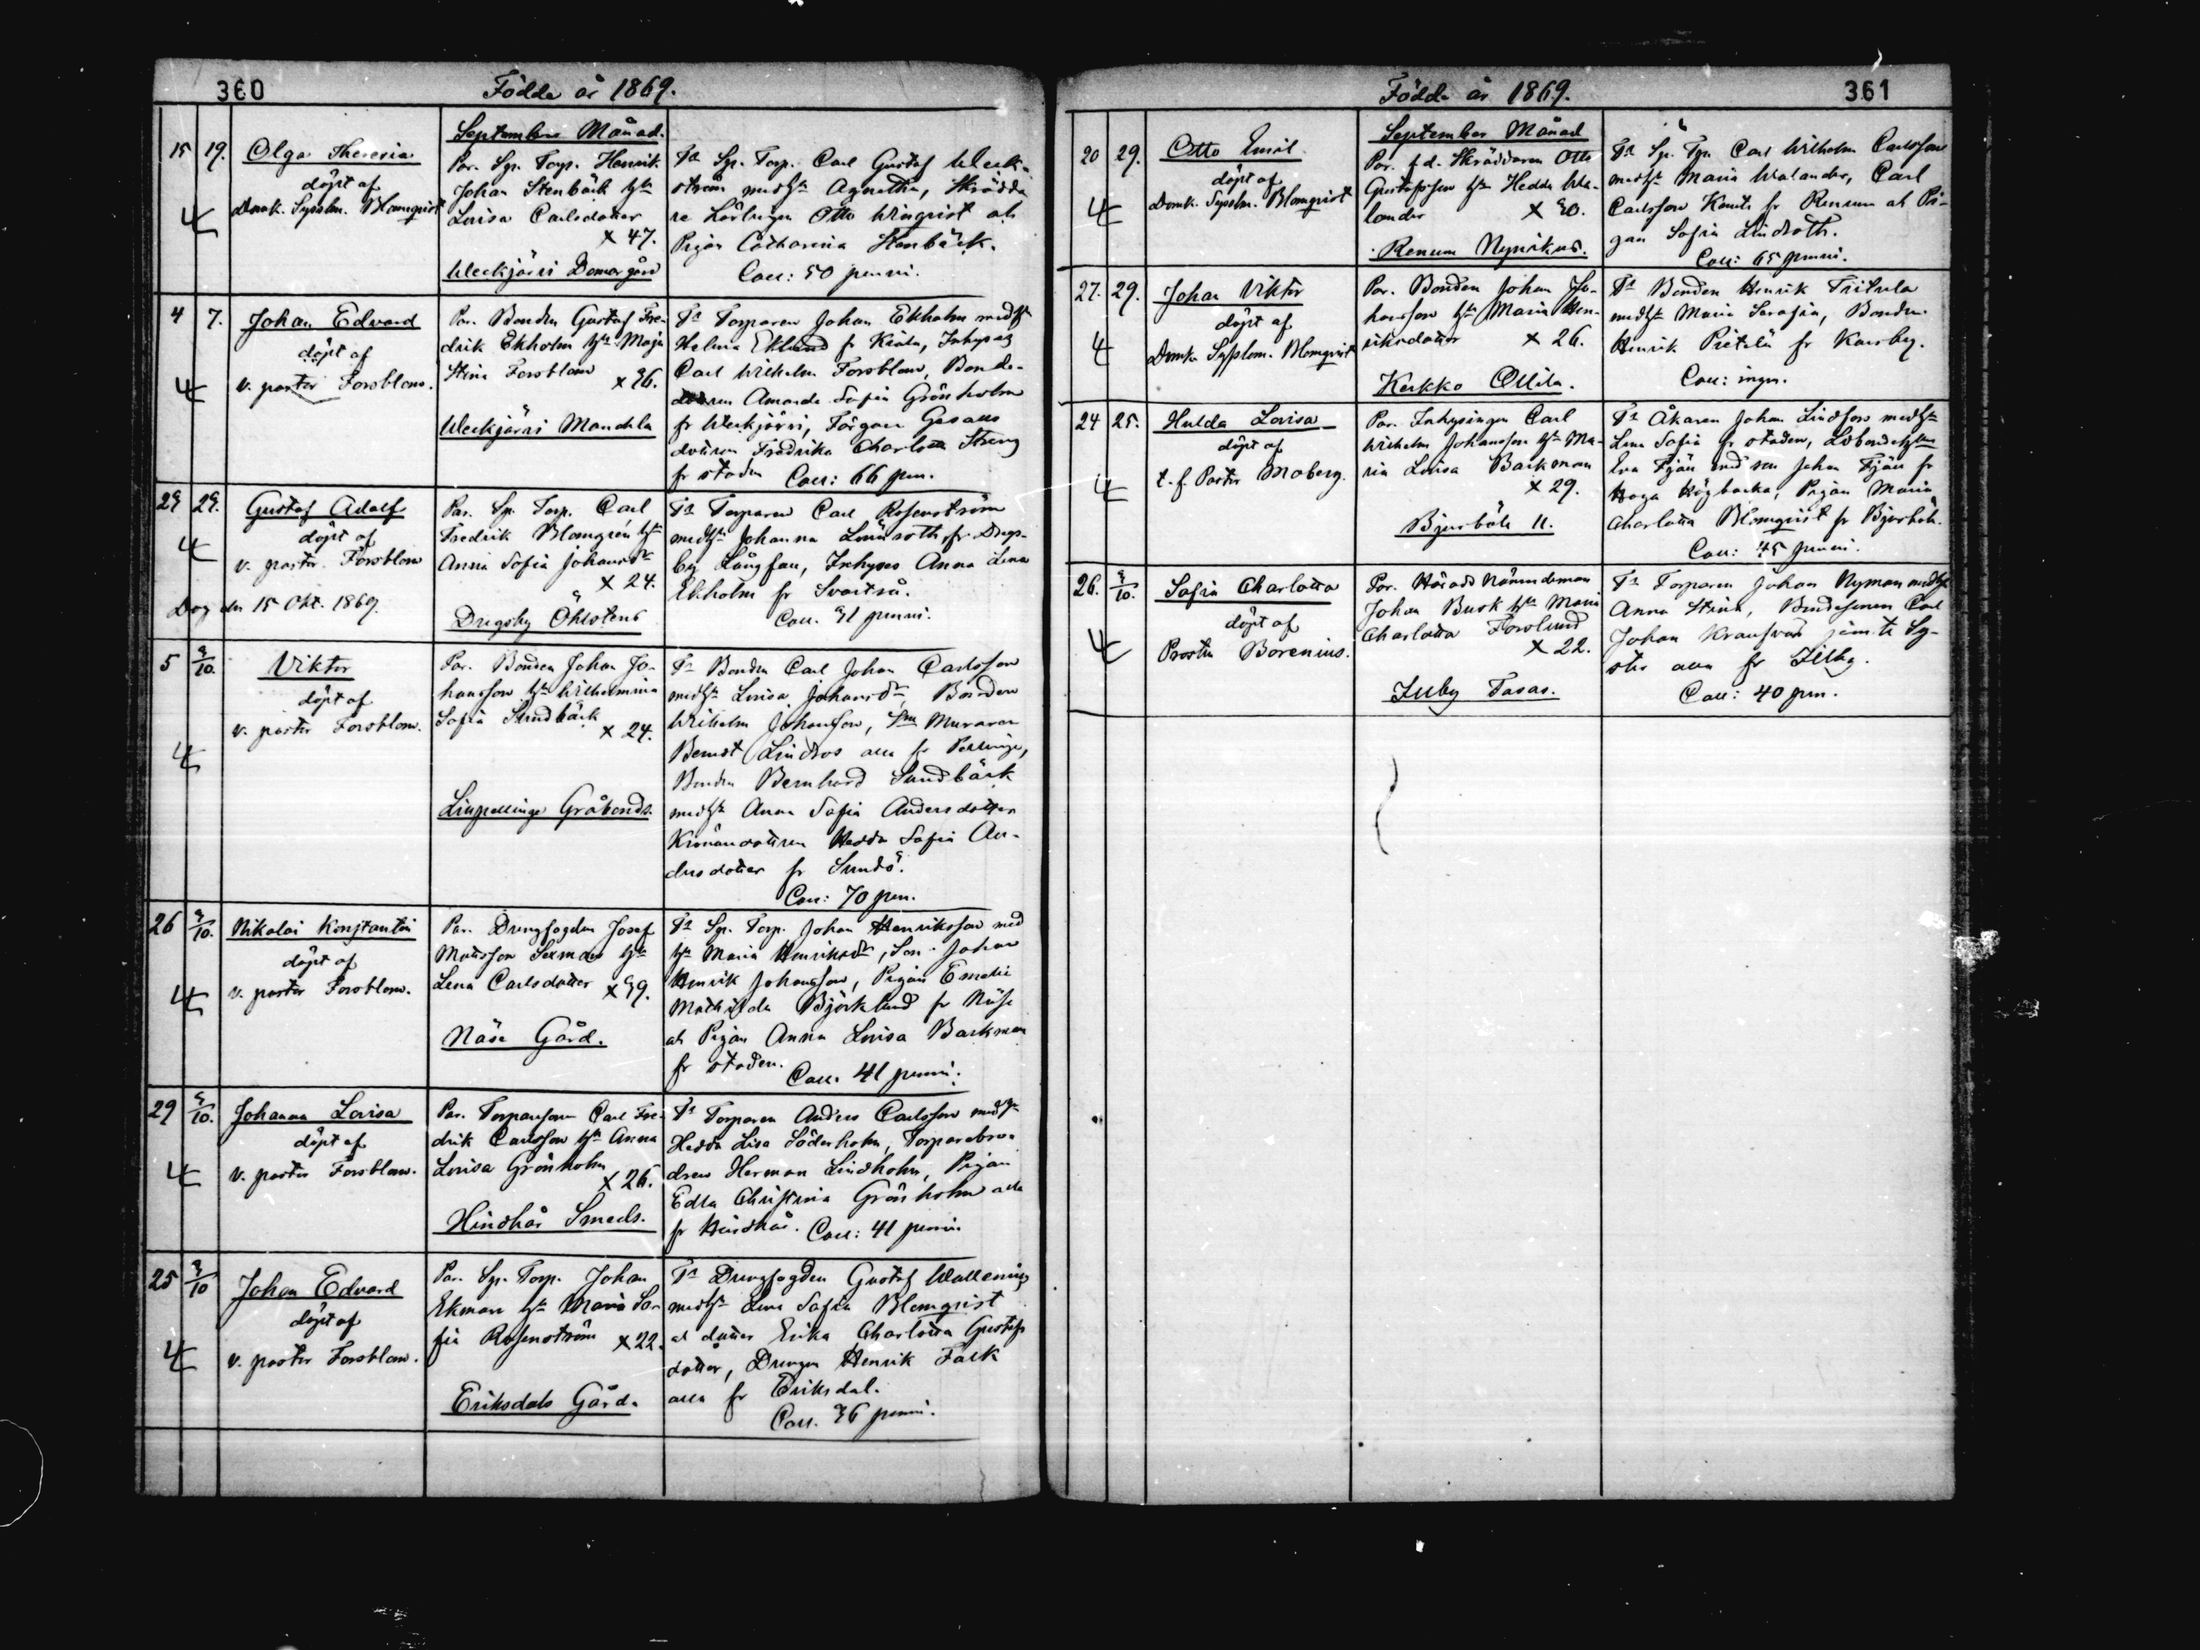 360
Födde år 1869.
Septembers Månad.
15 19. Olga Theresia
döpt af
Domk. Sysslm. Blomqvist
Par. Sp. Torp. Henrik
Johan Stenbäck hn
Lovisa Carlsdotter
x 47.
Weckjärvi Domargård
Ts Sp. Torp. Carl Gustaf Weck-
ström medhn Agnetha, Skrädda
re Lärlingen Otto Winqvist och
Pigan Catharina Stenbäck.
Coll: 50 penni.
4 7. Johan Edvard
döpt af
v. pastor Forsblom.
Par. Bonden Gustaf Fre-
drik Ekholm hn Maja
Stina Forsblom x 36.
Weckjärvi Mandela
Ts Torparen Johan Ekholm medhn
Helena Eklund fr Kiala, Inhyses
Carl Wilhelm Forsblom, Bonde-
dottren Amanda Sofia Grönholm
fr Weckjärvi, Färgare Gesells
dottren Fredrika Charlotta Streng
fr staden Coll: 66 pen.
23 23. Gustaf Adolf
döpt af
v. pastor Forsblom
Dog den 15 Okt. 1869.
Par. Sp. Torp. Carl
Fredrik Blomgrén hn
Anna Sofia Johansdr
x 24.
Drägsby Öhlstens
Ts Torparen Carl Rosenström
medhn Johanna Lönnroth fr Drägs-
by Långfan, Inhyses Anna Lena
Ekholm fr Svartså.
Coll. 31 penni.
5 3/10. Viktor
döpt af
v. pastor Forsblom.
Par. Bonden Johan Jo-
hansson hn Wilhelmina
Sofia Sundbäck x 24.
Lillpellinge Gråbonds.
Ts Bonden Carl Johan Carlsson
medhn Lovisa Johansdr, Bonden
Wilhelm Johansson, Sm Muraren
Berndt Lindros alla fr Pellinge,
Bonden Bernhard Sundbäck
medhn Anna Sofia Andersdotter
Kronandottren Hedda Sofia An-
dersdotter fr Sundö.
Coll: 70 pen.
26 3/10. Nikolai Konstantin
döpt af
v. pastor Forsblom.
Par. Drengfogden Josef
Mattsson Sexman hn
Lena Carlsdotter x 39.
Näse Gård.
Ts Sp. Torp. Johan Henriksson med
hn Maria Henriksdr, Son Johan
Henrik Johansson, Pigan Emelie
Mathilda Björklund fr Näse
och Pigan Anna Lovisa Backman
fr staden. Coll. 41 penni.
29 3/10. Johanna Lovisa
döpt af
v. pastor Forsblom.
Par. Torparesonen Carl Fre-
drik Carlsson hn Anna
Lovisa Grönholm
x 26.
Hindhår Smeds.
Ts Torparen Anders Carlsson medhn
Hedda Lisa Söderholm, Torparebro-
dren Herman Lindholm, Pigan
Edla Christina Grönholm alla
fr Hindhår. Coll: 41 penni.
25 3/10 Johan Edvard
döpt af
v. pastor Forsblom.
Par. Sp. Torp. Johan
Ekman hn Maria So-
fia Rosenström x 22.
Eriksdals Gård.
Ts Drengfogden Gustaf Wallenius
medhn Lena Sofia Blomqvist
och dotter Erika Charlotta Gustafs
dotter, Drengen Henrik Falk
alla fr Eriksdal.
Coll. 36 penni.
Födde år 1869.
361
September Månad
20 29. Otto Emil
döpt af
Domk. Sysslm. Blomqvist
Par. f.d. Skräddaren Otto
Gustafsson hn Hedda Wa-
lander x 30.
Renum Nynäkus.
Ts Sp. Tp. Carl Wilhelm Carlsson
medhn Maria Walander, Carl
Carlsson fr Renum och Pi-
gan Sofia Lindroth.
Coll: 65 penni.
27. 29. Johan Viktor
döpt af
Domk. Sysslom. Blomqvist
Par. Bonden Johan Jo-
hansson hn Maria Hen-
riksdotter x 26.
Kerkko Ollila.
Ts Bonden Henrik
medhn Maria Serafia, Bonden
Henrik Pietilä fr Karsby.
Coll: ingen.
24 25. Hulda Lovisa
döpt af
t.f. Pastor Moberg.
Par. Inhysingen Carl
Wilhelm Johansson hn Ma-
ria Lovisa Backman
x 29.
Bjurböle 11.
Ts Åkaren Johan Lindfors medhn
Lena Sofia fr staden,
Lva Fjäll med son Johan Fjäll fr
Haga Kögbacka, Pigan Maria
Charlotta Blomqvist fr Bjurböle.
Coll: 45 penni.
26. 3/10. Sofia Charlotta
döpt af
Prosten Borenius.
Par. Härads Nämndeman
Johan Busk hn Maria
Charlotta Forslund
x 22.
Illby Tasas.
Ts Torparen Johan Nyman medhn
Anna Stina, Bondesonen Carl
Johan jämte Sy-
ster alla fr Illby.
Coll: 40 pen.